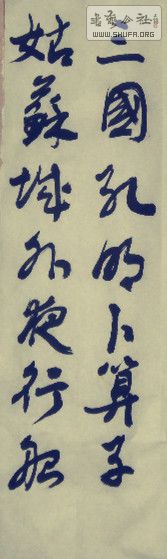 三國孔明卜算子
姑蘇城外夜行船
WWW.SHUFA.ORG